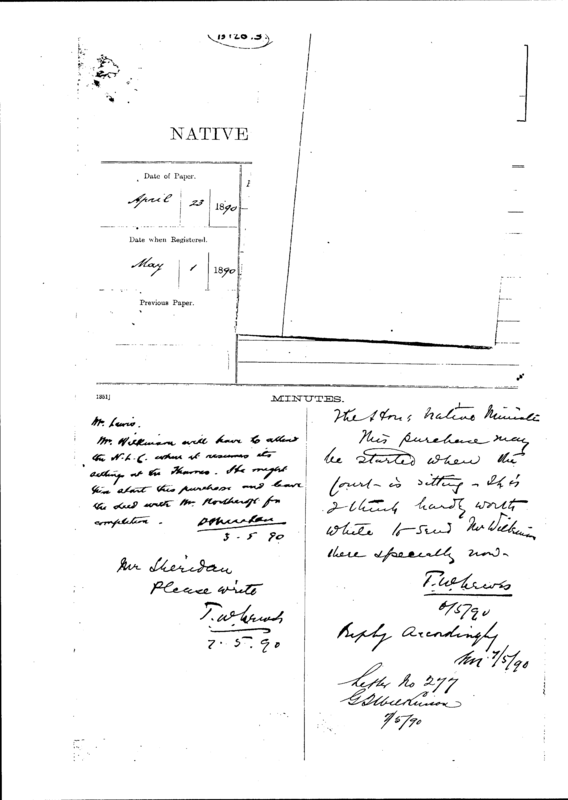 NATIVE
Date of Paper.
April 23 1890
Date when Registered.
May 1 1890
Previous Paper.
1351]
MINUTES.
Mr. Lewis.
Mr. Wilkinson will have to attend
the N.L.C. when it resumes its
sittings at the Thames. He might
then start this purchase and leave
the deed with Mr. for
completion.
3.5.90
Mr Sheridan
Please write
T.W. Lewis
7.5.90
The Hon. Native Minister
This purchase may
be started when the
Court is sitting - It is
I think hardly worth
while to send Mr Wilkinson
there specially now-
T.W. Lewis
6/5/90
Reply Accordingly
7/5/90
Letter No 277
G T Wilkinson
7/5/90